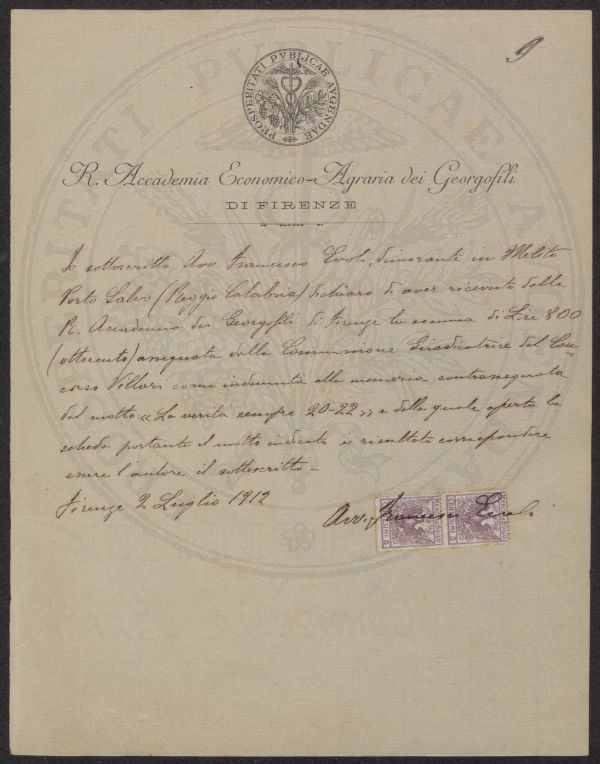 9
PROSPERITATI PVBLICAE AVGENDAE
R. Accademia Economico-Agraria dei Georgofili
DI FIRENZE
Io sottoscritto Avv. Francesco Evoli, dimorante in Melito
Porto Salvo (Reggio Calabria) dichiaro di aver ricevuto dalla
R. Accademia dei Georgofili di Firenze la somma di Lire 800
(ottocento) assegnata dalla Commissione Giudicatrice del Con-
corso Villari come indennità alla memoria contrassegnata
dal motto: « La verità sempre 20-22 » e della quale aperta la
scheda portante il motto indicato è risultato corrispondere
essere l'autore il sottoscritto -
Firenze 2 Luglio 1912
Avv. Francesco Evoli